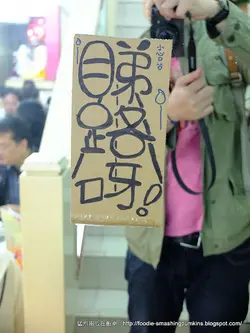 睇
路
呀!
http://foodie-smashingpumkins.blogspot.com/